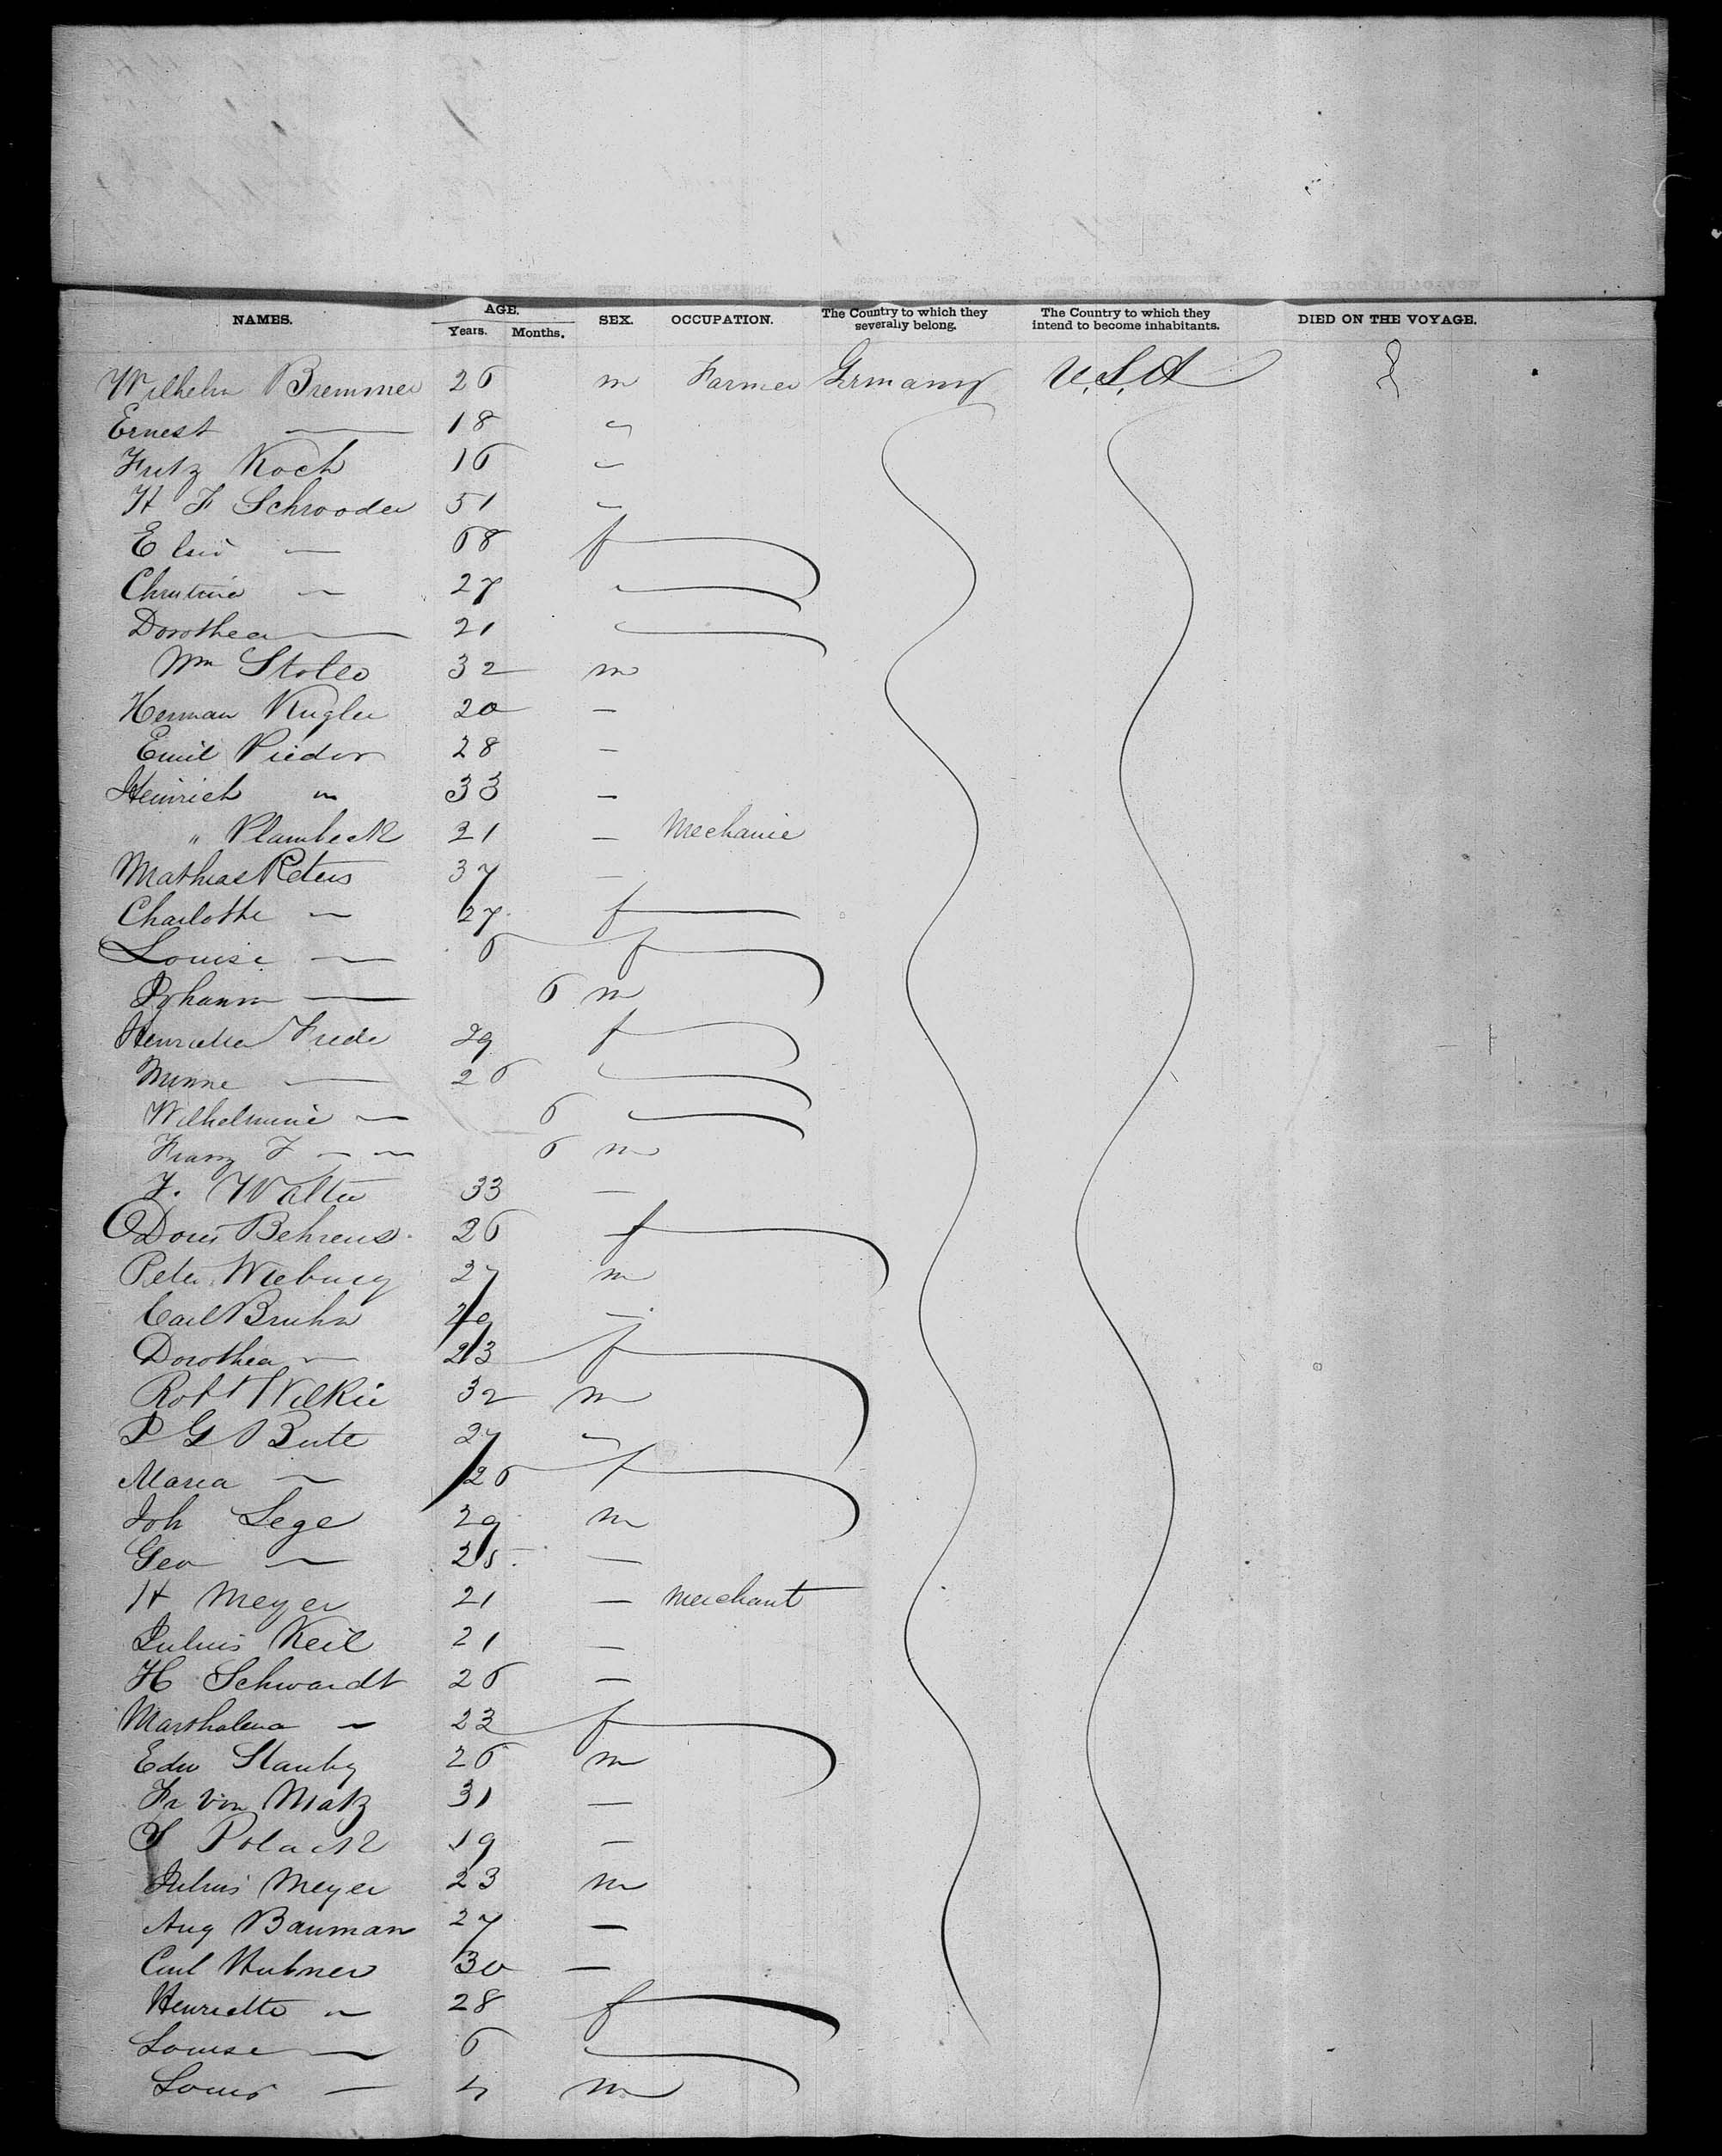 NAMES. AGE. Years. Months. SEX. OCCUPATION. The Country to which they severally belong. The Country to which they intend to become inhabitants. DIED ON THE VOYAGE.
Wilhelm Bremmer 26 m Farmer Germany U.S.A
Ernest — 18 "
Fritz Koch 16 "
H F Schrooder 51 "
— 68 f
Christine — 27
Dorothea — 21
Wm 32 m
Herman Kugler 20 —
Emil 28 —
Heinrich " 33 —
" Plambeck 21 — Mechanic
Mathias Peters 37 —
Charlotte — 27 f
Louise — 6 f
Johann — 6 m
Frede 29 f
Minne — 26
Wilhelmine — 6
Franz F — — 6 m
F. Walter 33 —
Doris Behrens 26 f
Peter 27 m
Carl Bruhn 29 —
Dorothea — 23 f
Robt Wilkie 32 m
P G Bute 27 "
Maria — 26 f
Joh Lege 29 m
Geo — 25 —
H Meyer 21 — Merchant
Julius Keil 21 —
H Schwardt 26 —
Marthalena — 23 f
Edw 26 m
Fr von Matz 31 —
Polack 19 —
Julius Meyer 23 m
Aug Bauman 27 —
Carl Hubner 30 —
Henriette " 28 f
Louise — 6
Louis — 4 m